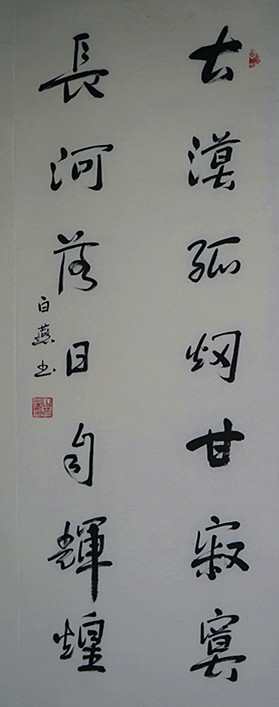 大漠孤烟甘寂寞
長河落日自輝煌
白燕书